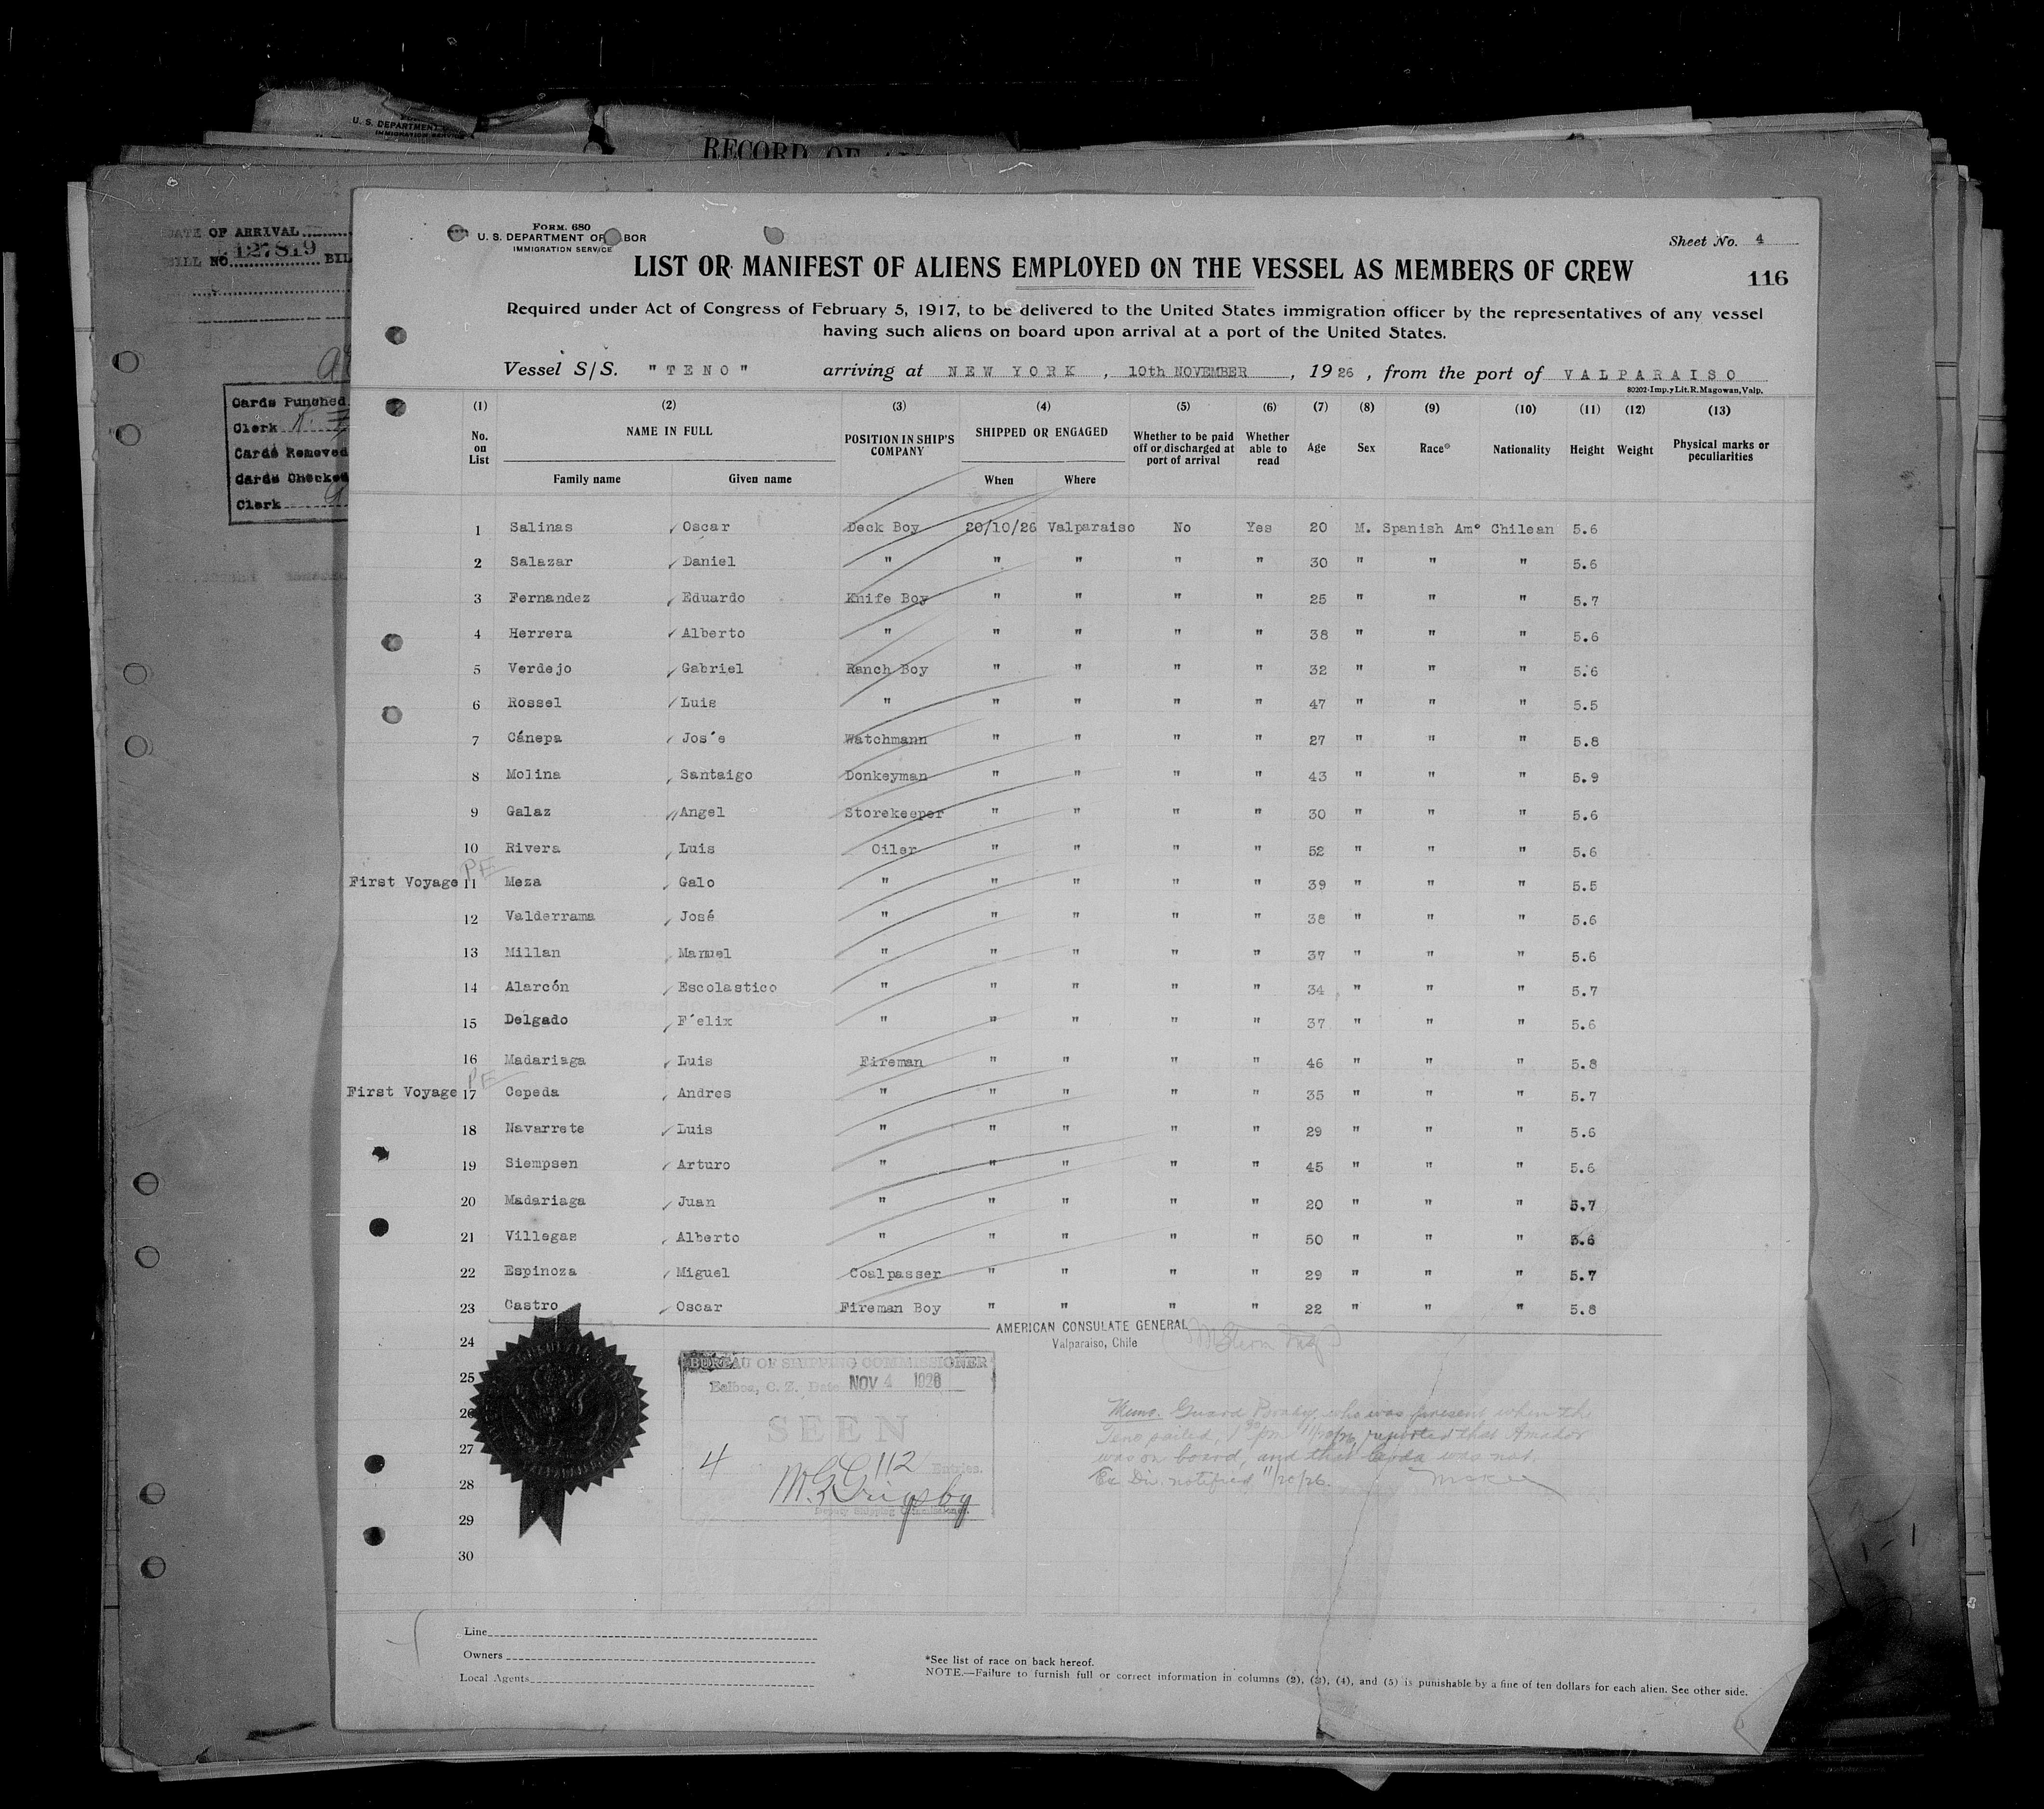 U. S. DEPARTMENT
IMMIGRATION SERVICE
RECORD OF
DATE OF ARRIVAL
BILL NO. 127819 BIL
Cards Punched
Clerk
Cards Removed
Cards Checked
Clerk
FORM. 680
U. S. DEPARTMENT OF LABOR
IMMIGRATION SERVICE
Sheet No. 4
116
LIST OR MANIFEST OF ALIENS EMPLOYED ON THE VESSEL AS MEMBERS OF CREW
Required under Act of Congress of February 5, 1917, to be delivered to the United States immigration officer by the representatives of any vessel
having such aliens on board upon arrival at a port of the United States.
Vessel S/S. "TENO" arriving at NEW YORK, 10th NOVEMBER, 1926, from the port of VALPARAISO
80202-Imp. y Lit. R. Magowan, Valp.
(1) (2) (3) (4) (5) (6) (7) (8) (9) (10) (11) (12) (13)
No. on List NAME IN FULL POSITION IN SHIP'S COMPANY SHIPPED OR ENGAGED Whether to be paid off or discharged at port of arrival Whether able to read Age Sex Race* Nationality Height Weight Physical marks or peculiarities
Family name Given name When Where
1 Salinas Oscar Deck Boy 20/10/26 Valparaiso No Yes 20 M. Spanish Amº Chilean 5.6
2 Salazar Daniel " " " " " 30 " " " 5.6
3 Fernandez Eduardo Knife Boy " " " " 25 " " " 5.7
4 Herrera Alberto " " " " " 38 " " " 5.6
5 Verdejo Gabriel Ranch Boy " " " " 32 " " " 5.6
6 Rossel Luis " " " " " 47 " " " 5.5
7 Cánepa Jos´e Watchmann " " " " 27 " " " 5.8
8 Molina Santaigo Donkeyman " " " " 43 " " " 5.9
9 Galaz Angel Storekeeper " " " " 30 " " " 5.6
10 Rivera Luis Oiler " " " " 52 " " " 5.6
PE
First Voyage 11 Meza Galo " " " " " 39 " " " 5.5
12 Valderrama José " " " " " 38 " " " 5.6
13 Millan Manuel " " " " " 37 " " " 5.6
14 Alarcón Escolastico " " " " " 34 " " " 5.7
15 Delgado F´elix " " " " " 37 " " " 5.6
16 Madariaga Luis Fireman " " " " 46 " " " 5.8
PE
First Voyage 17 Cepeda Andres " " " " " 35 " " " 5.7
18 Navarrete Luis " " " " " 29 " " " 5.6
19 Siempsen Arturo " " " " " 45 " " " 5.6
20 Madariaga Juan " " " " " 20 " " " 5.7
21 Villegas Alberto " " " " " 50 " " " 5.6
22 Espinoza Miguel Coalpasser " " " " 29 " " " 5.7
23 Castro Oscar Fireman Boy " " " " 22 " " " 5.8
24
25
26
27
28
29
30
AMERICAN CONSULATE GENERAL
Valparaiso, Chile
BUREAU OF SHIPPING COMMISSIONER
Balboa, C. Z. Date NOV 4 1926
SEEN
4 112 Entries.
M. G. Grigsby
Deputy Shipping Commissioner.
Memo. Guard Brady, who was present when the
Teno sailed, 1 30 pm 11/20/26, reported that Amador
was on board, and that was not.
Ex Div. notified 11/20/26.
Line
Owners
Local Agents
*See list of race on back hereof.
NOTE.—Failure to furnish full or correct information in columns (2), (3), (4), and (5) is punishable by a fine of ten dollars for each alien. See other side.